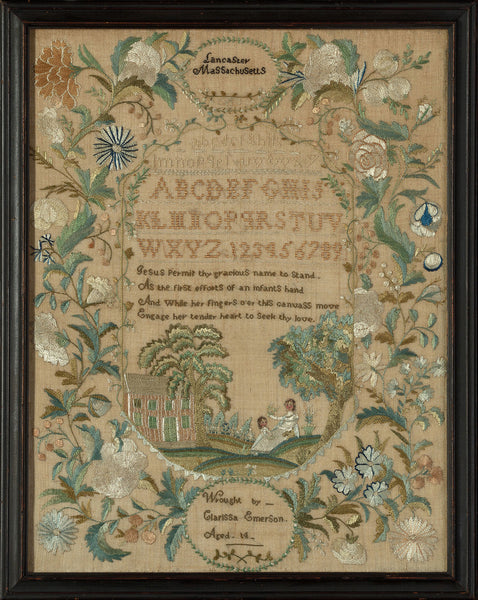 Lancaster
Massachusetts
ABCDEFGHIJ
KLMNOPQRSTUV
WXYZ.123456789
Jesus Permit thy gracious name to Stand.
As the first efforts of an infants hand
And While her fingers o'er this canvass move
Engage her tender heart to Seek thy love.
Wrought by
Clarissa Emerson.
Aged